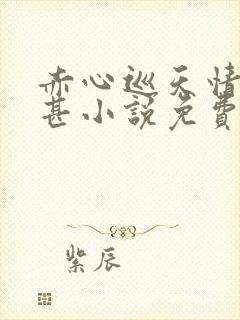 赤心巡天情
甚小說免費
紫辰